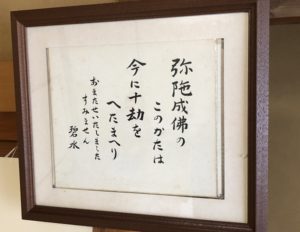 弥陁成佛の
このかたは
今に十劫を
へたまへり
おまたせいたしました
すみません
碧水